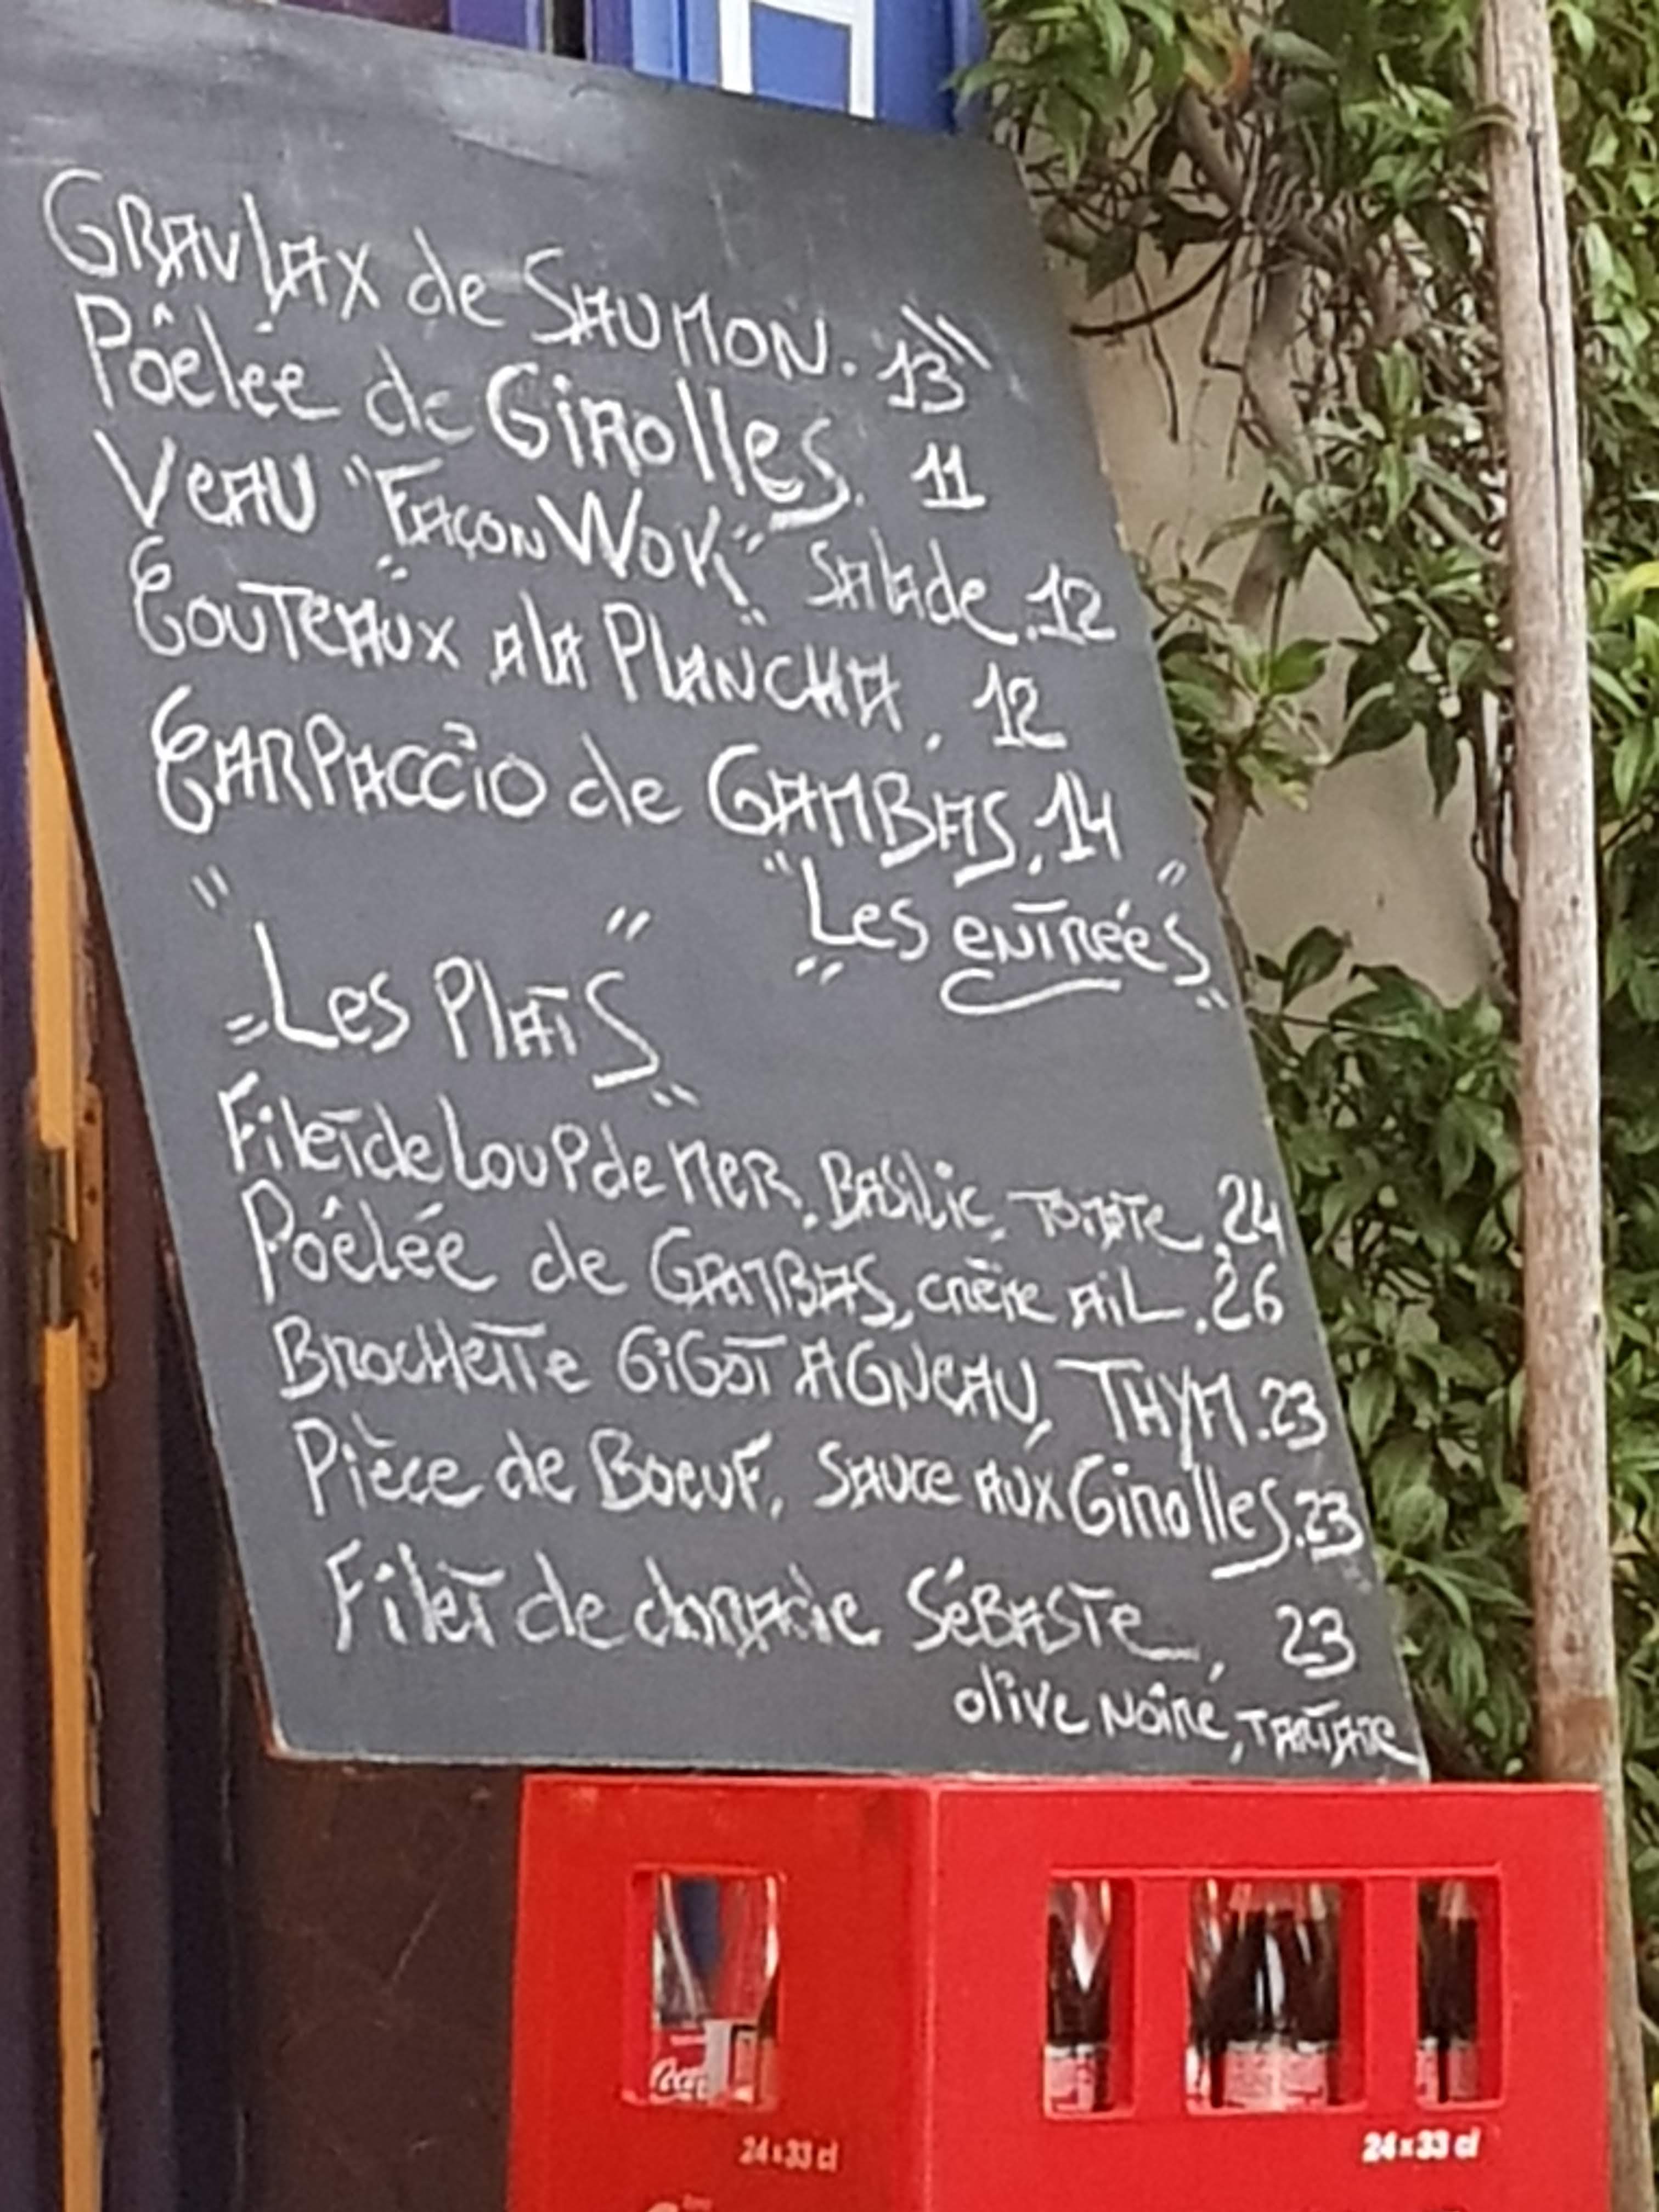 GRAVLAX de SAUMON. 13"
Pôelée de Girolles. 11
Veau "Façon Wok" Salade. 12
Couteaux ala Plancha. 12
CARPACCio de GAMBAS. 14
"Les entrées"
"Les Plats"
Filet de Loup de Mer. Basilic, Tomate. 24
Pôelée de GAMBAS, crème AiL. 26
Brochette GiGot AGNeau, THYM. 23
Pièce de Boeuf, Sauce aux Girolles. 23
Filet de Sébaste, 23
olive Noire, TARTARE
Coca
24x33 cl
24x33 cl